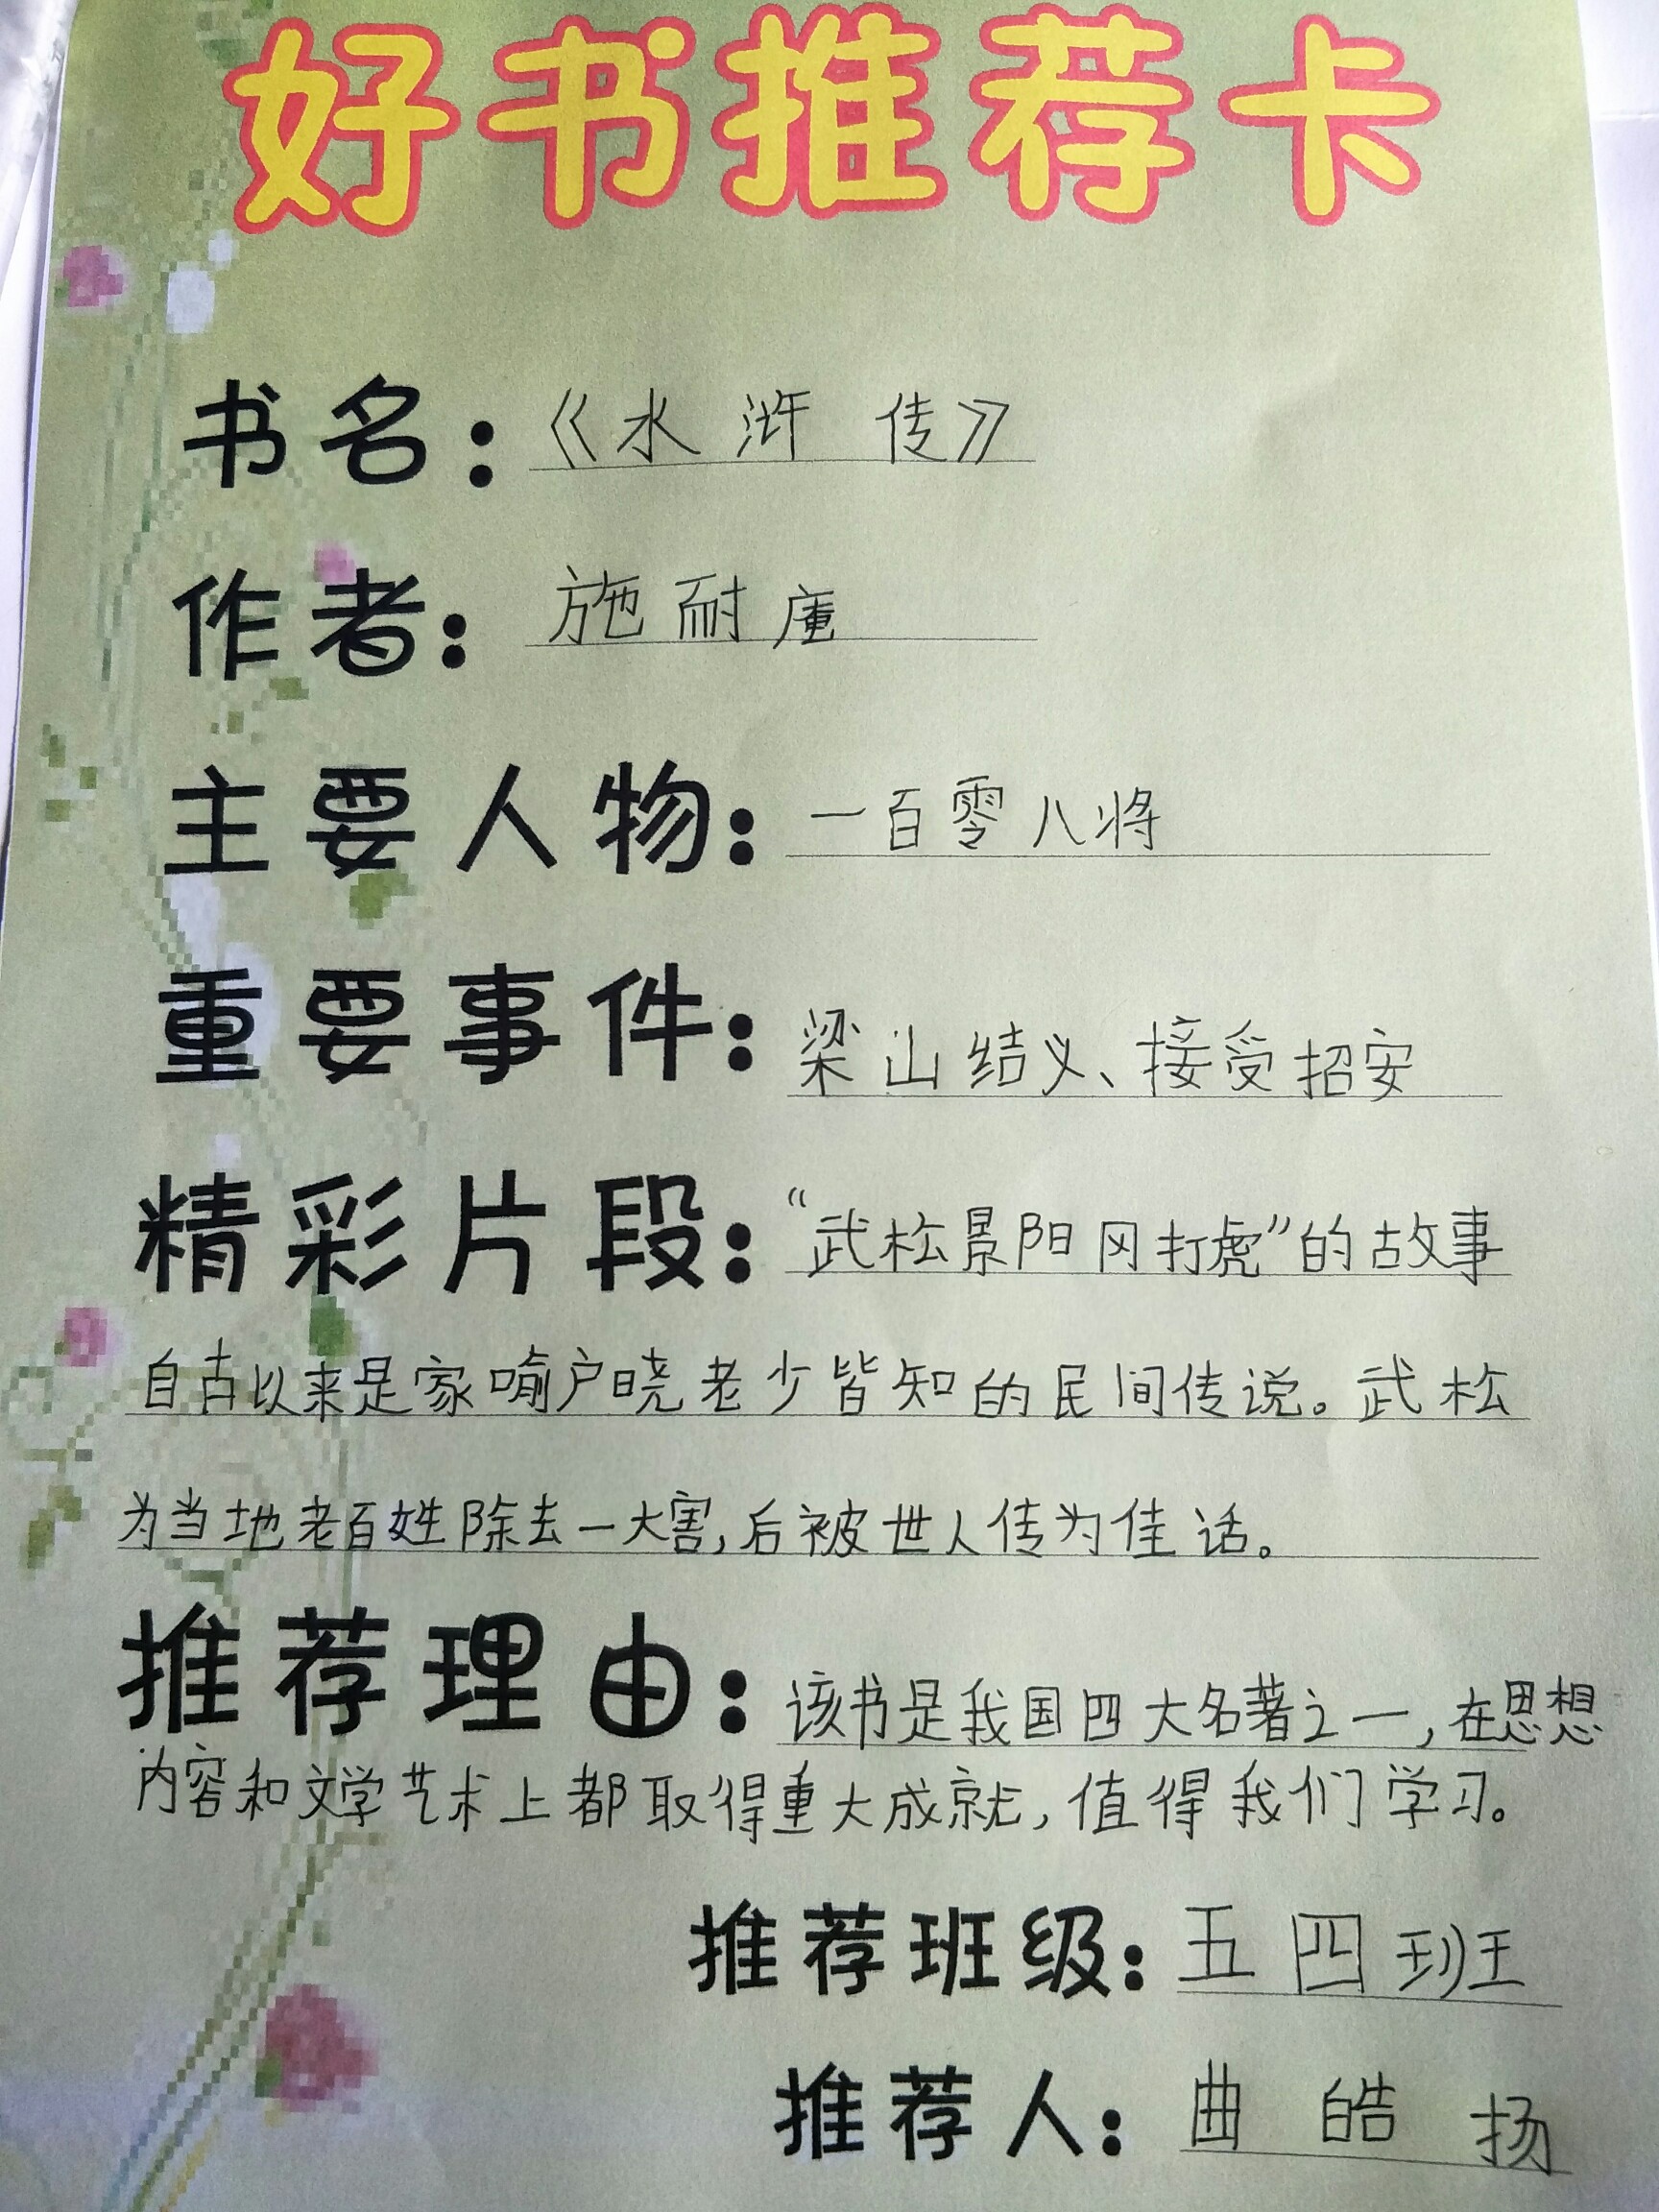 好书推荐卡
书名：《水浒传》
作者：施耐庵
主要人物：一百零八将
重要事件：梁山结义、接受招安
精彩片段：“武松景阳冈打虎”的故事
自古以来是家喻户晓老少皆知的民间传说。武松
为当地老百姓除去一大害,后被世人传为佳话。
推荐理由：该书是我国四大名著之一,在思想
内容和文学艺术上都取得重大成就,值得我们学习。
推荐班级：五四班
推荐人：曲皓扬